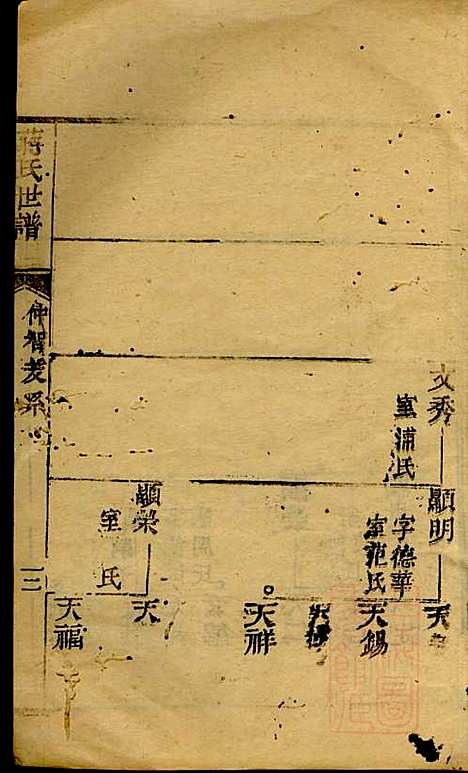 文秀
室浦氏
顯明
字德華
室范氏
天
天錫
天
天祥
顯榮
室　氏
天
天福
蔣氏世譜
仲智
系